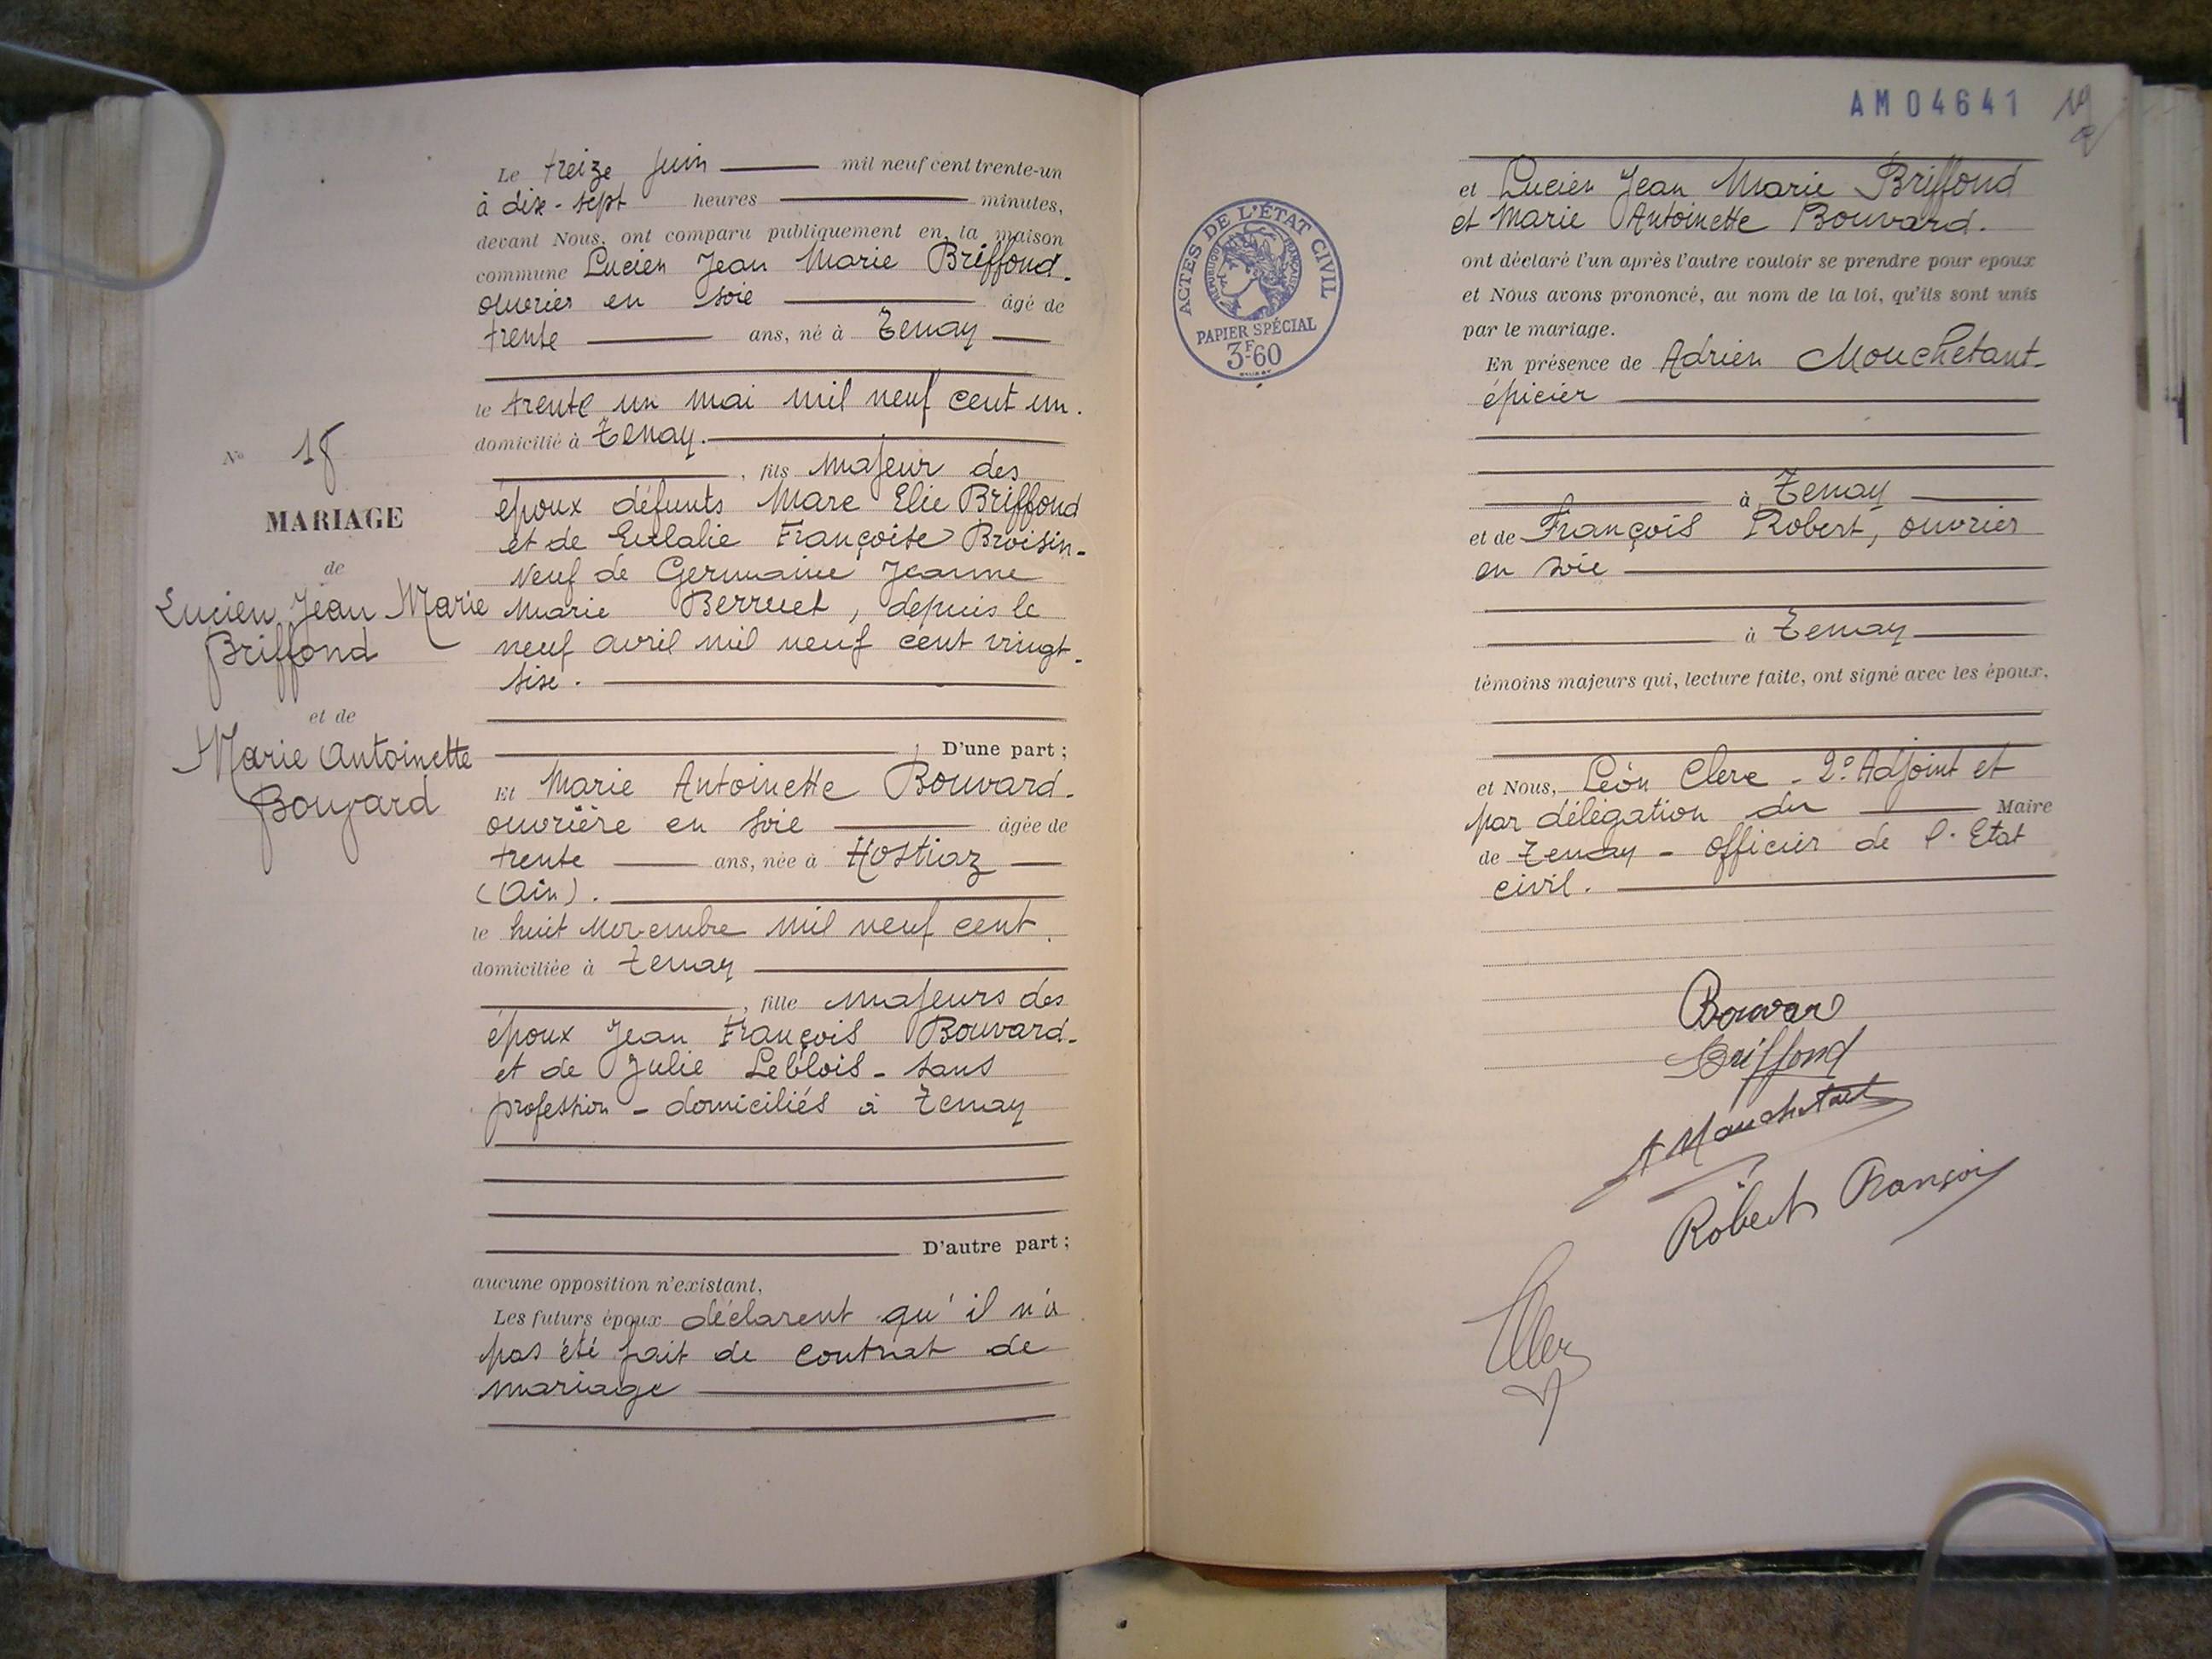 N° 18
MARIAGE
de
Lucien Jean Marie
Briffond
et de
Marie Antoinette
Bouvard
Le treize Juin mil neuf cent trente-un
à dix-sept heures minutes,
devant Nous, ont comparu publiquement en la maison
commune Lucien Jean Marie Briffond-
ouvrier en soie âgé de
trente ans, né à Tenay
le trente un mai mil neuf cent un.
domicilié à Tenay.
, fils majeur des
époux défunts Marc Elie Briffond
et de Eulalie Françoise Broisin-
Veuf de Germaine Jeanne
Marie Berruet, depuis le
neuf avril mil neuf cent vingt-
six.
D'une part;
Et Marie Antoinette Bouvard-
ouvrière en soie âgée de
trente ans, née à Hostiaz
(Ain).
le huit Novembre mil neuf cent.
domiciliée à Tenay
, fille majeurs des
époux Jean François Bouvard-
et de Julie Leblois - sans
profession - domiciliés à Tenay
D'autre part;
aucune opposition n'existant,
Les futurs époux déclarent qu'il n'a
pas été fait de contrat de
mariage
AM04641 19
ACTES DE L'ÉTAT CIVIL
RÉPUBLIQUE FRANÇAISE
PAPIER SPÉCIAL
3F60
et Lucien Jean Marie Briffond
et Marie Antoinette Bouvard.
ont déclaré l'un après l'autre vouloir se prendre pour époux
et Nous avons prononcé, au nom de la loi, qu'ils sont unis
par le mariage.
En présence de Adrien Mouchetant-
épicier
à Tenay
et de François Robert, ouvrier
en soie
à Tenay
témoins majeurs qui, lecture faite, ont signé avec les époux,
et Nous, Léon Clerc - 2e Adjoint et
par délégation du Maire
de Tenay - officier de l'Etat
civil.
Bouvard
Briffond
A Mouchetant
Robert François